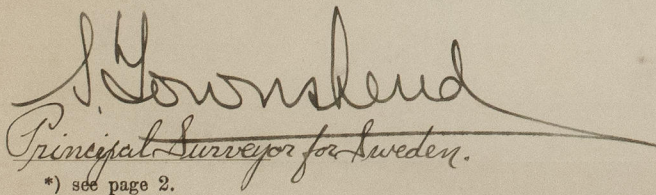 S. Townshend
Principal Surveyor for Sweden.
*) see page 2.